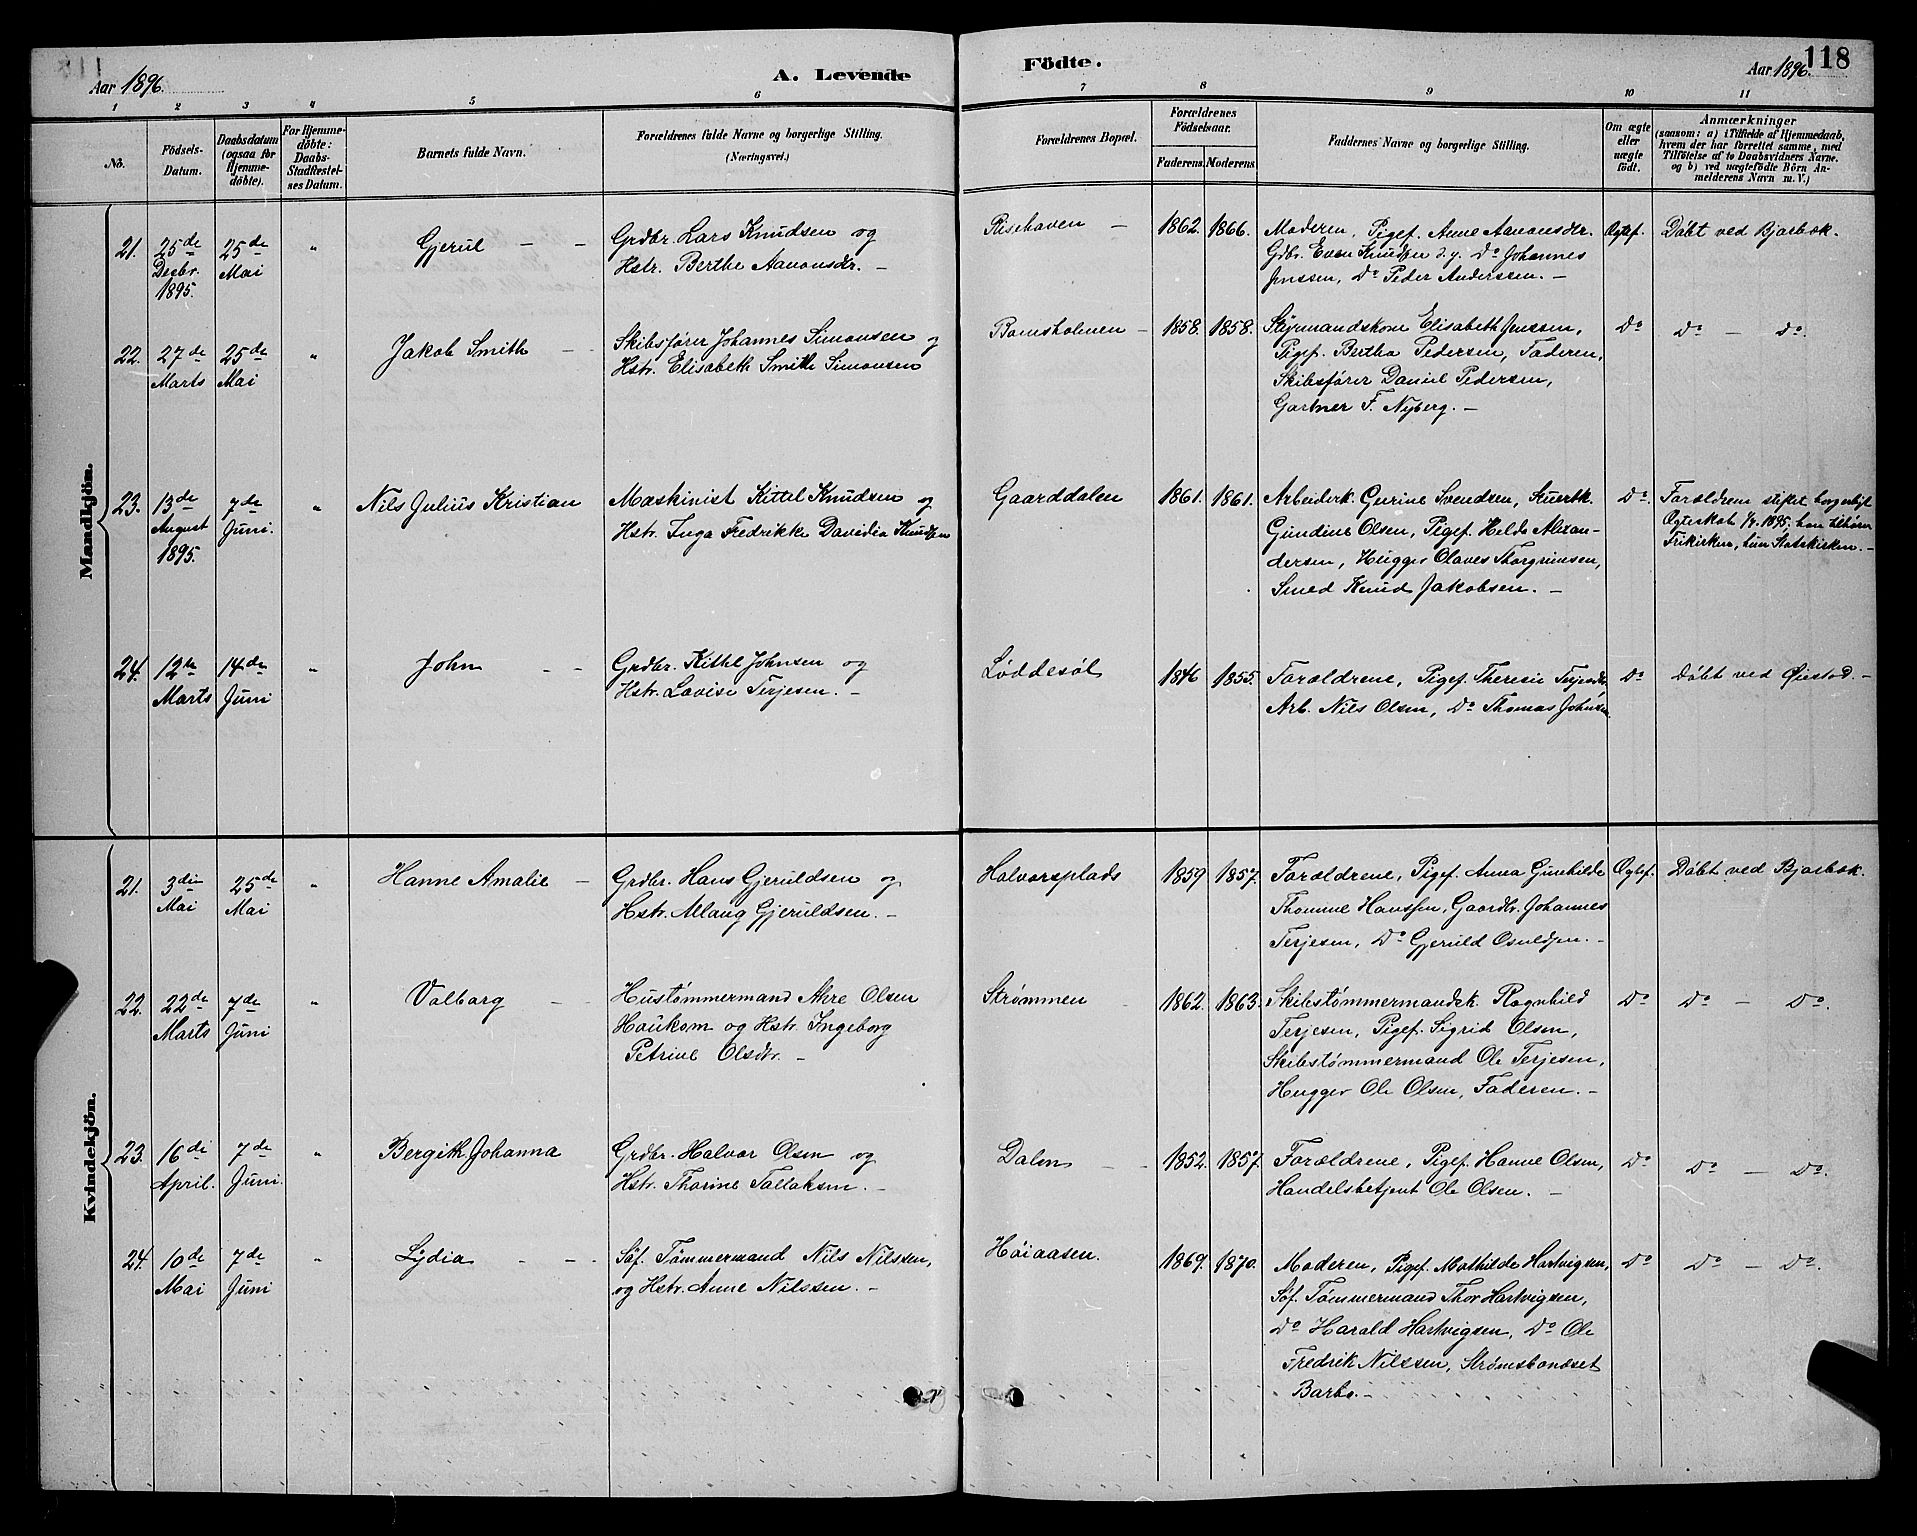 118
Aar 1896.
A. Levende
Födte.
Aar 1896.
1 2 3 4 5 6 7 8 9 10 11
No.
Födsels-
Datum.
Daabsdatum
(ogsaa for
Hjemme-
döbte).
For Hjemme-
döbte:
Daabs-
Stadfæstel-
ses Datum.
Barnets fulde Navn.
Forældrenes fulde Navne og borgerlige Stilling.
(Næringsvei.)
Forældrenes Bopæl.
Forældrenes
Födselsaar.
Faderens. Moderens.
Faddernes Navne og borgerlige Stilling.
Om ægte
eller
uægte
födt.
Anmærkninger
(saasom: a) i Tilfælde af Hjemmedaab,
hvem der har forrettet samme, med
Tilföielse af to Daabsvidners Navne.
og b) ved uægtefödte Börn An-
melderens Navn m. V.)
Mandkjön.
21. 25de Decbr. 1895. 25de Mai " Gjerul — —
Grdbr. Lars Knudsen og
Hstr. Berthe Aanonsdtr. —
Risehaven — 1862. 1866.
Moderen, Pigef. Anne Aanonsdtr.
Gdbr. Even Knudsen d.y. Do Johannes
Jenssen, Do Peder Anderssen. —
Ægtef. Döbt ved Bjorbæk.
22. 27de Marts 25de Mai " Jakob Smith —
Skibsfører Johannes Simonsen og
Hstr. Elisabeth Smith Simonsen
Bomsholmen — 1858. 1858.
Styrmandskone Elisabeth Jenssen,
Pigef. Bertha Pedersen, Faderen,
Skibsfører Daniel Pedersen,
Gartner F. Nyberg. —
Do Do — Do.
23. 13de August 1895. 7de Juni. " Nils Julius Kristian
Maskinist Kittel Knudsen og
Hstr. Inga Fredrikke Davidia Knudsen
Gaarddalen 1861. 1861.
Arbeiderk. Gurine Svendsen, Stuertk.
Gundine Olsen, Pigef. Helde Alexan-
dersen, Hugger Olaves Thorgrimsen,
Smed Knud Jakobsen. —
Do. Forældrene stiftet borgerligt
Ægteskab 1895, han tilhører
Frikirken, hun Statskirken. —
24. 12te Marts 14de Juni " John — —
Grdbr. Kittel Johnsen og
Hstr. Lovise Terjesen. —
Løddesøl 1846 1855.
Forældrene, Pigef. Theresie
Arb. Nils Olsen, Do Thomas Johnsen
Do Döbt ved Øiestad. —
Kvindekjön.
21. 3die Mai 25de Mai " Hanne Amalie —
Grdbr. Hans Gjeruldsen og
Hstr. Allaug Gjeruldsen. —
Halvorsplads 1859 1857.
Forældrene, Pigef. Anna Gunhilde
Thomine Hanssen, Gaardbr. Johannes
Terjesen, Do Gjeruld Osuldsen. —
Ægtef. Döbt ved Bjorbæk.
22. 22de Marts 7de Juni " Valborg —
Hustømmermand Akre Olsen
Haukom og Hstr. Ingeborg
Petrine Olsdtr. —
Strømmen — 1862. 1863.
Skibstømmermandsk. Ragnhild
Terjesen, Pigef. Sigrid Olsen,
Skibstømmermand Ole Terjesen,
Hugger Ole Olsen, Faderen. —
Do Do — Do.
23. 16de April. 7de Juni. " Bergith Johanna
Grdbr. Halvor Olsen og
Hstr. Thorine Tallaksen. —
Dalen — — 1852. 1857.
Forældrene, Pigef. Hanne Olsen,
Handelsbetjent Ole Olsen. —
Do Do — Do.
24. 10de Mai 7de Juni " Lydia — —
Søf. Tømmermand Nils Nilssen,
og Hstr. Anne Nilssen. —
Høiaasen. 1869. 1870.
Moderen, Pigef. Mathilde Hartvigsen,
Søf. Tømmermand Thor Hartvigsen,
Do Harald Hartvigsen, Do Ole
Fredrik Nilssen, Strømsbonæset
Barbo. —
Do Do — Do.